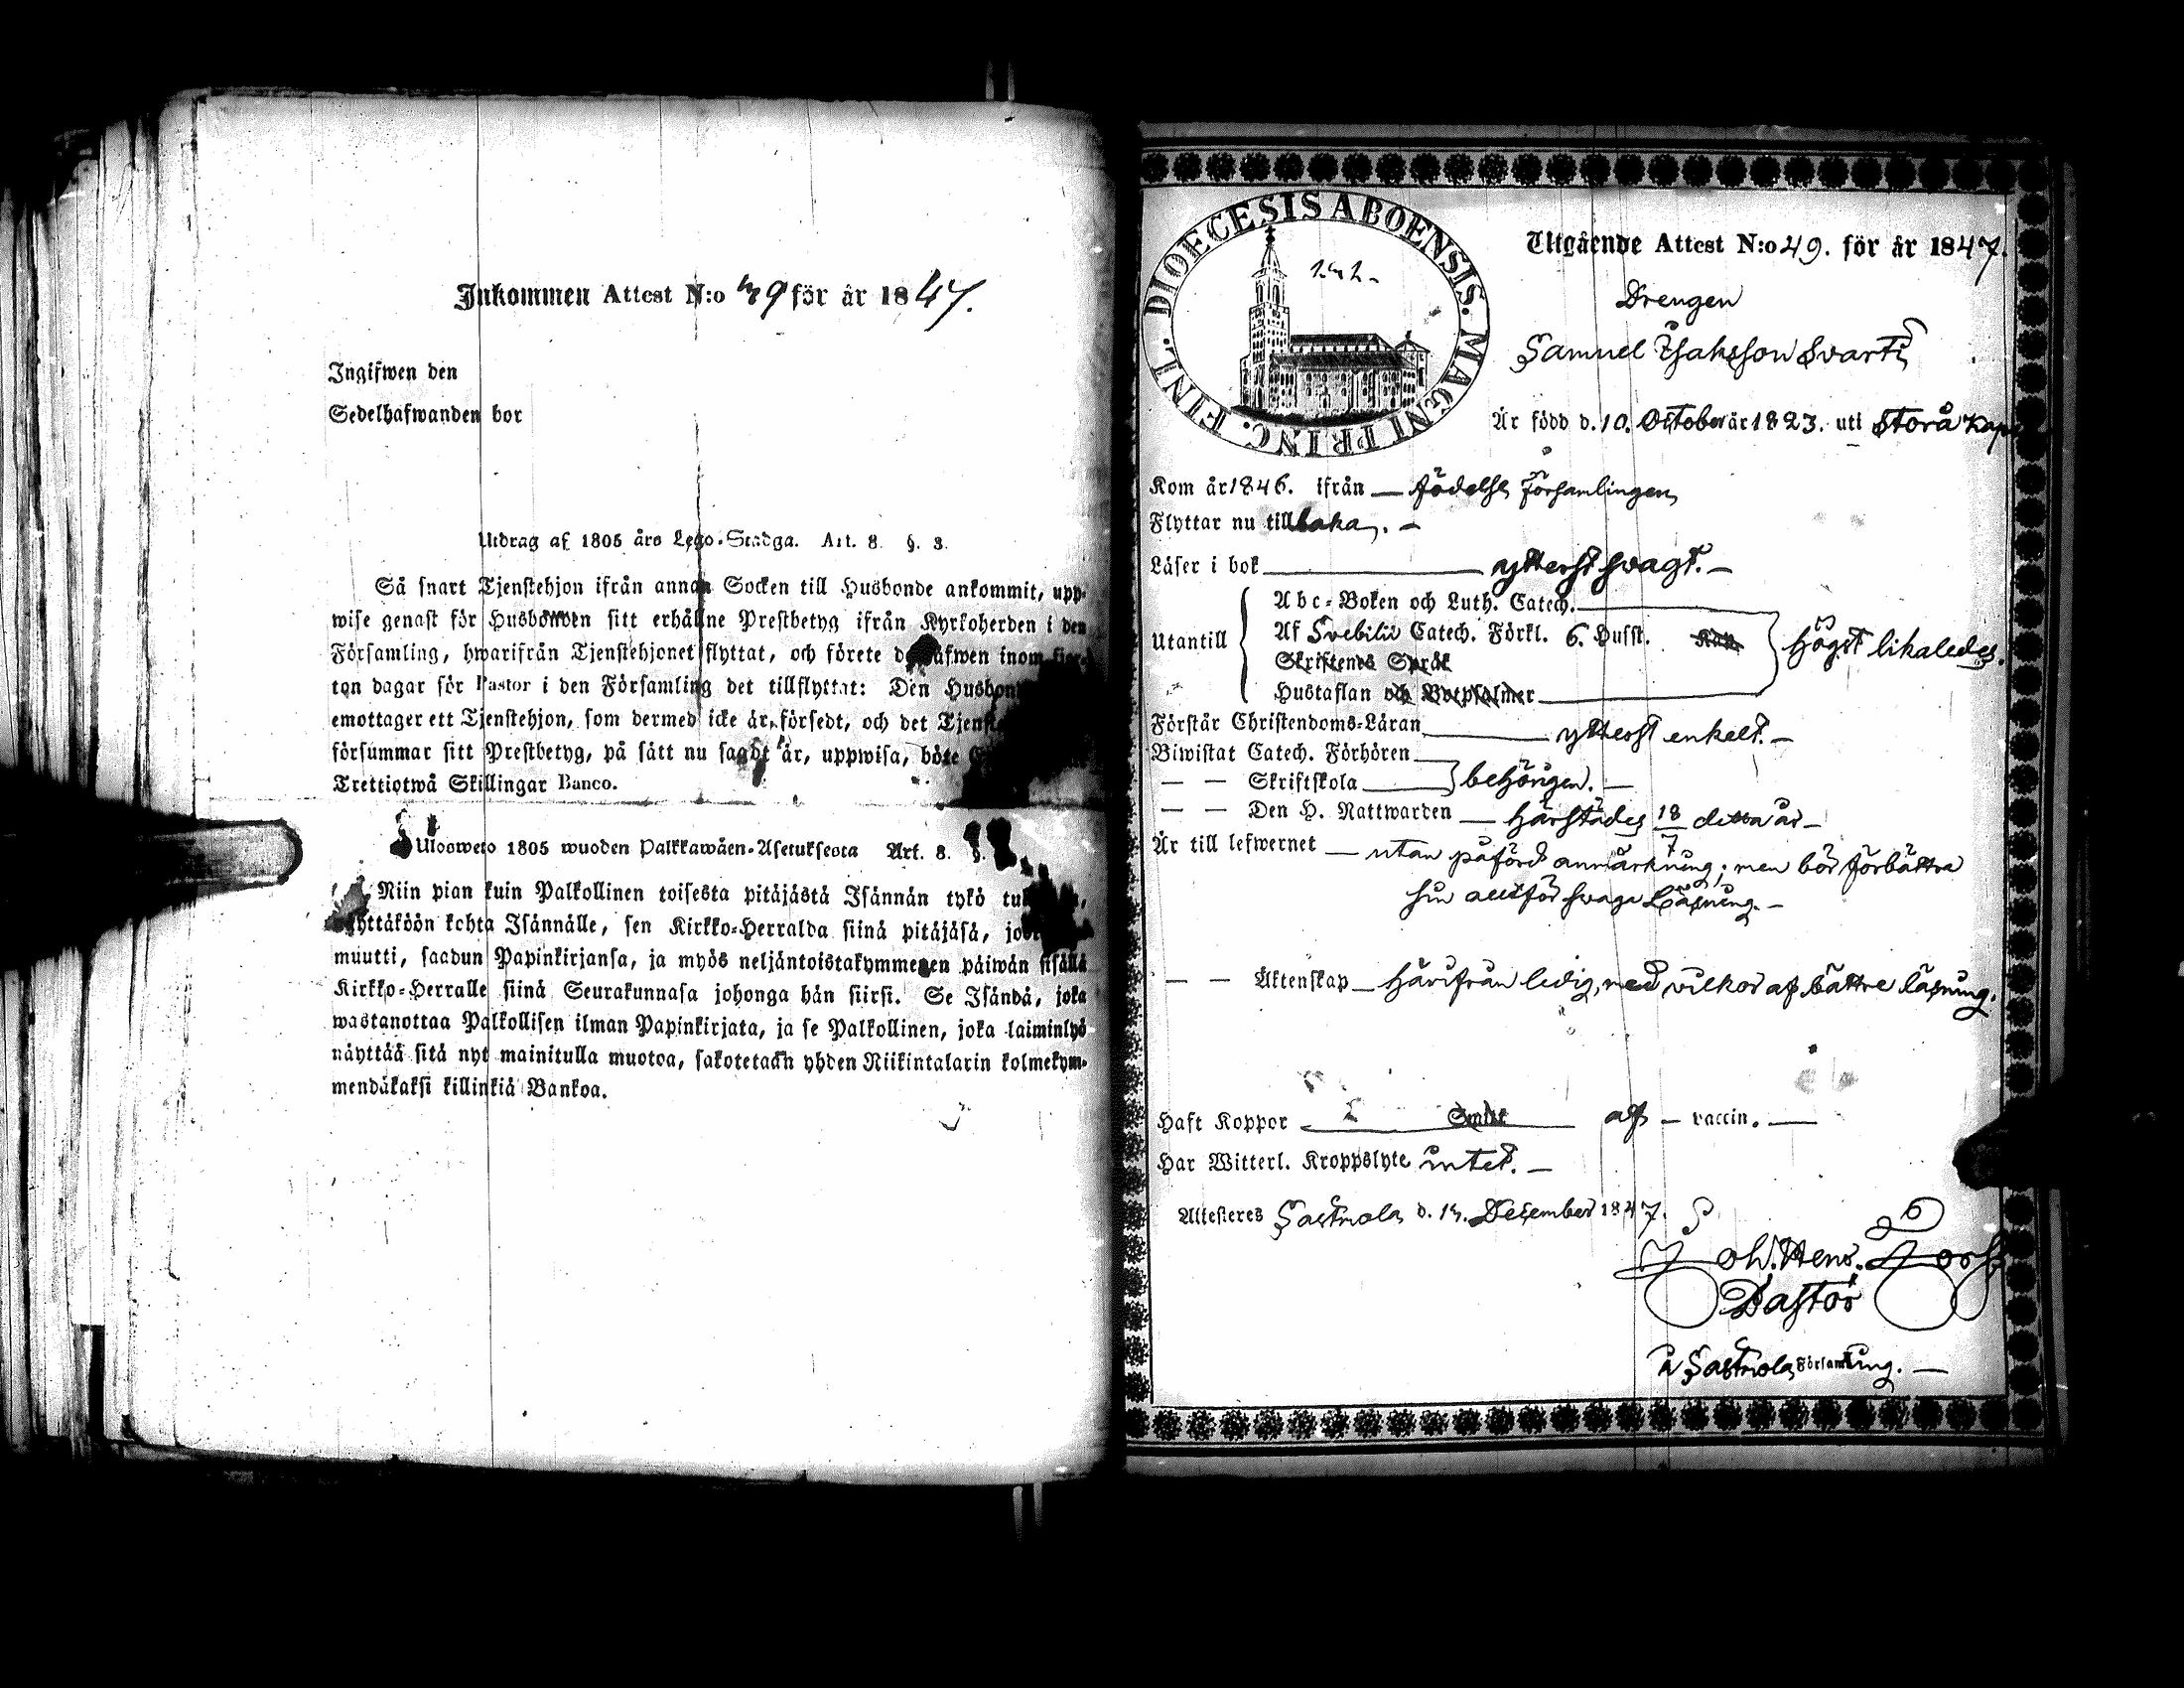 Inkommen Attest N:o 49 för år 1847.
Ingifwen den
Sedelhafwanden bor
Utdrag af 1805 års Lego-Stadga. Art. 8. §. 3.
Så snart Tjenstehjon ifrån annan Socken till Husbonde ankommit, upp-
wise genast för Husbonden sitt erhållne Prestbetyg ifrån Kyrkoherden i den
Församling, hwarifrån Tjenstehjonet flyttat, och förete det äfwen inom fjor-
ton dagar för Pastor i den Församling det tillflyttat: Den Husbonde
emottager ett Tjenstehjon, som dermed icke är försedt, och det Tjenste
försummar sitt Prestbetyg, på sätt nu sagdt är, uppwisa, böte
Trettiotwå Skillingar Banco.
Ulosweto 1805 wuoden Palkkawäen-Asetuksesta Art. 8. §.
Niin pian kuin Palkollinen toisesta pitäjästä Isännän tykö
näyttäköön kohta Isännälle, sen Kirkko-Herralda siinä pitäjäsä,
muutti, saadun Papinkirjansa, ja myös neljäntoistakymmenen päiwän sisällä
Kirkko-Herralle siinä Seurakunnasa johonga hän siirsi. Se Isändä, joka
wastanottaa Palkollisen ilman Papinkirjata, ja se Palkollinen, joka laiminlyö
näyttää sitä nyt mainitulla muotoa, sakotetaan yhden Riikintalarin kolmekym-
mendäkaksi killinkiä Bankoa.
DIOECESIS ABOENSIS. MAGNI PRINC. FINL.
Utgående Attest N:o 49. för år 1847.
Drengen
Samuel Isaksson Svarti
Är född d. 10. October år 1823. uti Storå Kap
Kom år 1846. ifrån — födelse församlingen
Flyttar nu tillbaka. —
Läser i bok — ytterst svagt. —
Utantill
Abc-Boken och Luth. Catech.
Af Svebilii Catech. Förkl. 6. Husst.
Skriftenes Språk
Hustaflan och Botpsalmer
högst likaledes.
Förstår Christendoms-Läran — ytterst enkelt. —
Biwistat Catech. Förhören
— — Skriftskola } behörigen. —
— — Den H. Nattwarden — härstädes 18/7 detta år —
Är till lefwernet — utan påförd anmärkning; men bör förbättra
sin alltför svaga läsning. —
— — Äktenskap — härifrån ledig, med vilkor af bättre läsning.
Haft Koppor Smitt af — vaccin. —
Har Witterl. Kroppslyte intet. —
Attesteres Sastmola d. 14. December 1847.
Joh. Henr. Fors
Pastor
i Sastmola Församling. —